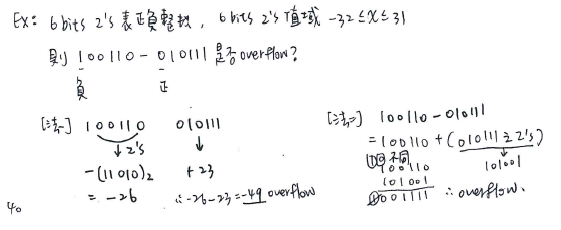 Ex: 6 bits 2's 表正負整數, 6 bits 2's 值域 -32≤x≤31
則 100110 - 010111 是否 overflow?
負 正
[法一] 100110 010111
↓2's ↓
-(11010)₂ +23
= -26 ∴-26-23=-49 overflow
[法二] 100110-010111
=100110+(010111之2's)
101001
不同
100110
101001
①001111 ∴overflow.
40